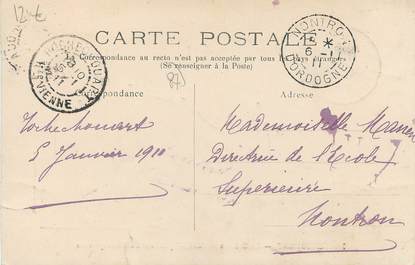 12€
CARTE POSTALE
La Correspondance au recto n'est pas acceptée par tous les pays étrangers
(Se renseigner à la Poste)
Correspondance
Adresse
ROCHECHOUART
Hte VIENNE
NONTRON
6 - 1
11
DORDOGNE
(87)
Rochechouart
5 Janvier 1911
Mademoiselle
Directrice de l'Ecole
Supérieure
Nontron